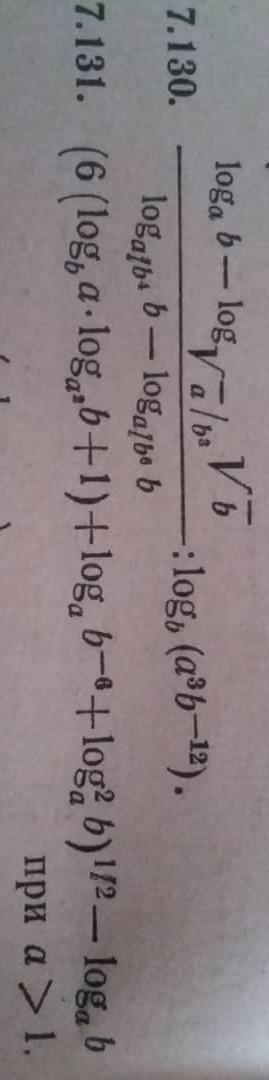 7.130. (log_a b − log_{√a/b³} √b) / (log_{a/b⁴} b − log_{a/b⁶} b) : log_b (a³b⁻¹²).
7.131. (6 (log_b a · log_{a²} b + 1) + log_a b⁻⁶ + log²_a b)^{1/2} − log_a b
при a > 1.